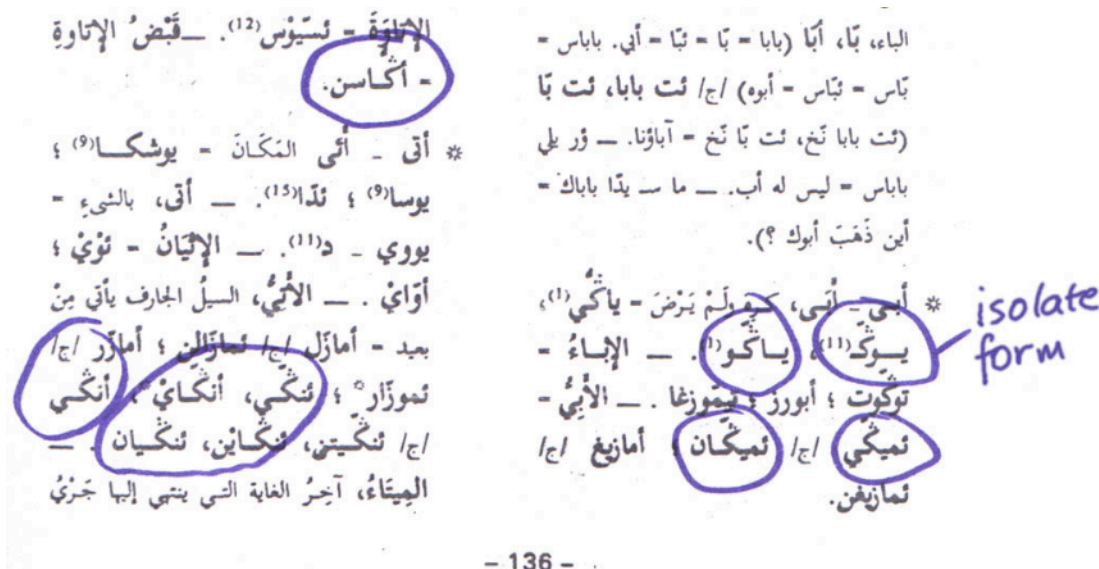 الباء، بّا، أبّا (بابا - بّا - ئبّا - أبي. باباس -
بّاس - ئبّاس - أبوه) /ج/ ئت بابا، ئت بّا
(ئت بابا نّخ، ئت بّا نّخ - آباؤنا. — ؤر يلي
باباس - ليس له أب. — ما سـ يدّا باباك -
أين ذَهَبَ أبوك ؟).
* أبى - أَبَى، كـره ولَمْ يَرْضَ - ياݣّي(1)،
يـوݣـ(11)، يـاݣّـو(1). — الإبـاءُ -
توݣّوت ؛ أبورز ؛ تيموزغا . — الأَبِيُّ -
ئميݣّي /ج/ ئميݣّـان ؛ أمازيغ /ج/
ئمازيغن.
isolate
form
الإتاوَةَ - ئسّيوْس(12). —قَبْضُ الإتاوةِ
- أݣّـاسن.
* أتى - أَتَى المَكَانَ - يوشكـا(9) ؛
يوسا(9) ؛ ئدّا(15). — أتى، بالشيءِ -
يووي - د(11). — الإتْيَانُ - ئوْيْ ؛
أوّايْ . — الأَتِيُّ، السيلُ الجارف يأتي مِنْ
بعيد - أمازَل /ج/ ئمازّالن ؛ أمازّر /ج/
ئموزّار* ؛ ئنݣـي، أنݣـايْ* ؛ أنݣـي
/ج/ ئنݣـيتن، ئنݣـاين، ئنݣـيان . —
المِيتَاءُ، آخِرُ الغاية التـي ينتهي إليها جَرْيُ
- 136 -